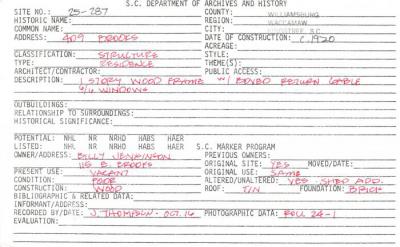 S.C. DEPARTMENT OF ARCHIVES AND HISTORY
SITE NO.: 25-287 COUNTY: WILLIAMSBURG
HISTORIC NAME: REGION: WACCAMAW
COMMON NAME: CITY:
ADDRESS: 409 BROOKS DATE OF CONSTRUCTION: C. 1920
ACREAGE:
CLASSIFICATION: STRUCTURE STYLE:
TYPE: RESIDENCE THEME(S):
ARCHITECT/CONTRACTOR: PUBLIC ACCESS:
DESCRIPTION: 1 STORY WOOD FRAME W/ BOXED RETURN GABLE
WINDOWS
OUTBUILDINGS:
RELATIONSHIP TO SURROUNDINGS:
HISTORICAL SIGNIFICANCE:
POTENTIAL: NHL NR NRHD HABS HAER
LISTED: NHL NR NRHD HABS HAER S.C. MARKER PROGRAM
OWNER/ADDRESS: BILLY JENKINSON PREVIOUS OWNERS:
115 E. BROOKS ORIGINAL SITE: YES MOVED/DATE:
PRESENT USE: VACANT ORIGINAL USE: SAME
CONDITION: POOR ALTERED/UNALTERED: YES SHED ADD.
CONSTRUCTION: WOOD ROOF: TIN FOUNDATION: BRICK
BIBLIOGRAPHIC & RELATED DATA:
INFORMANT/ADDRESS:
RECORDED BY/DATE: J. THOMPSON - OCT. 16 PHOTOGRAPHIC DATA: ROLL 24-1
EVALUATION: